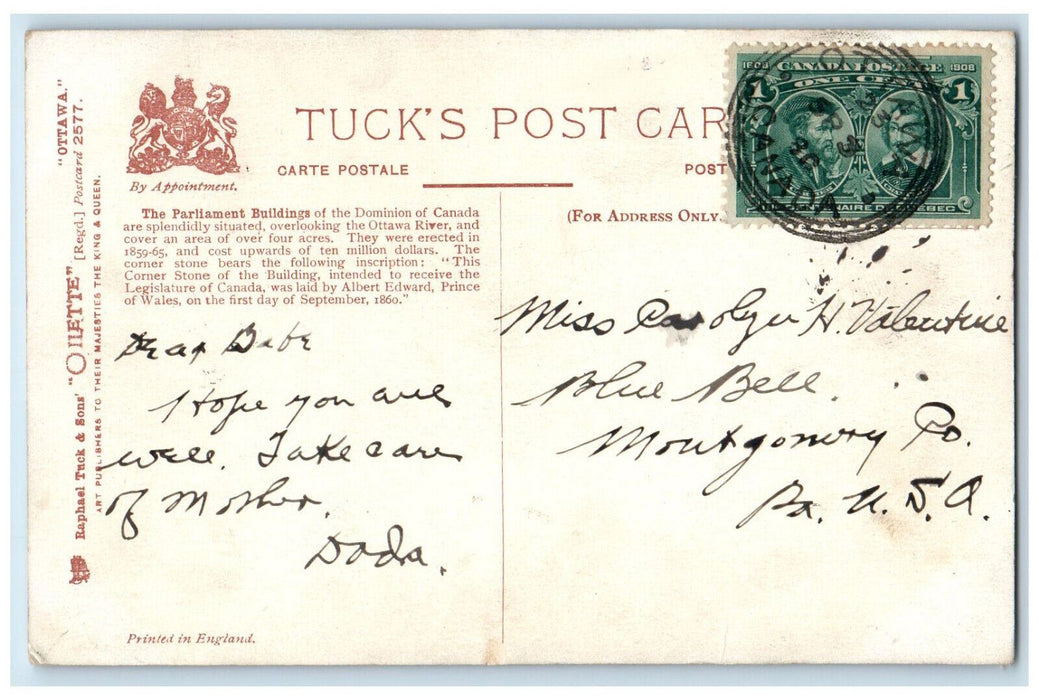 TUCK'S POST CAR
CARTE POSTALE
POST
By Appointment.
(FOR ADDRESS ONLY.
The Parliament Buildings of the Dominion of Canada
are splendidly situated, overlooking the Ottawa River, and
cover an area of over four acres. They were erected in
1859-65, and cost upwards of ten million dollars. The
corner stone bears the following inscription: "This
Corner Stone of the Building, intended to receive the
Legislature of Canada, was laid by Albert Edward, Prince
of Wales, on the first day of September, 1860."
Dear Babe
I Hope you are
well. Take care
of Mother.
Dada.
Printed in England.
"OTTAWA."
Raphael Tuck & Sons' "OILETTE" [Regd.] Postcard 2577.
ART PUBLISHERS TO THEIR MAJESTIES THE KING & QUEEN.
1608 CANADA POSTAGE 1908
1 ONE CENT 1
CANADA
Miss Carolyn H. Valentine
Blue Bell.
Montgomery Co.
Pa. U.S.A.